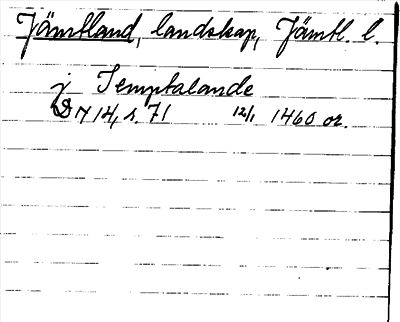 Jämtland, landskap, Jämtl. l.
j Temptalande
DN 14, s. 71 12/1 1460 or.